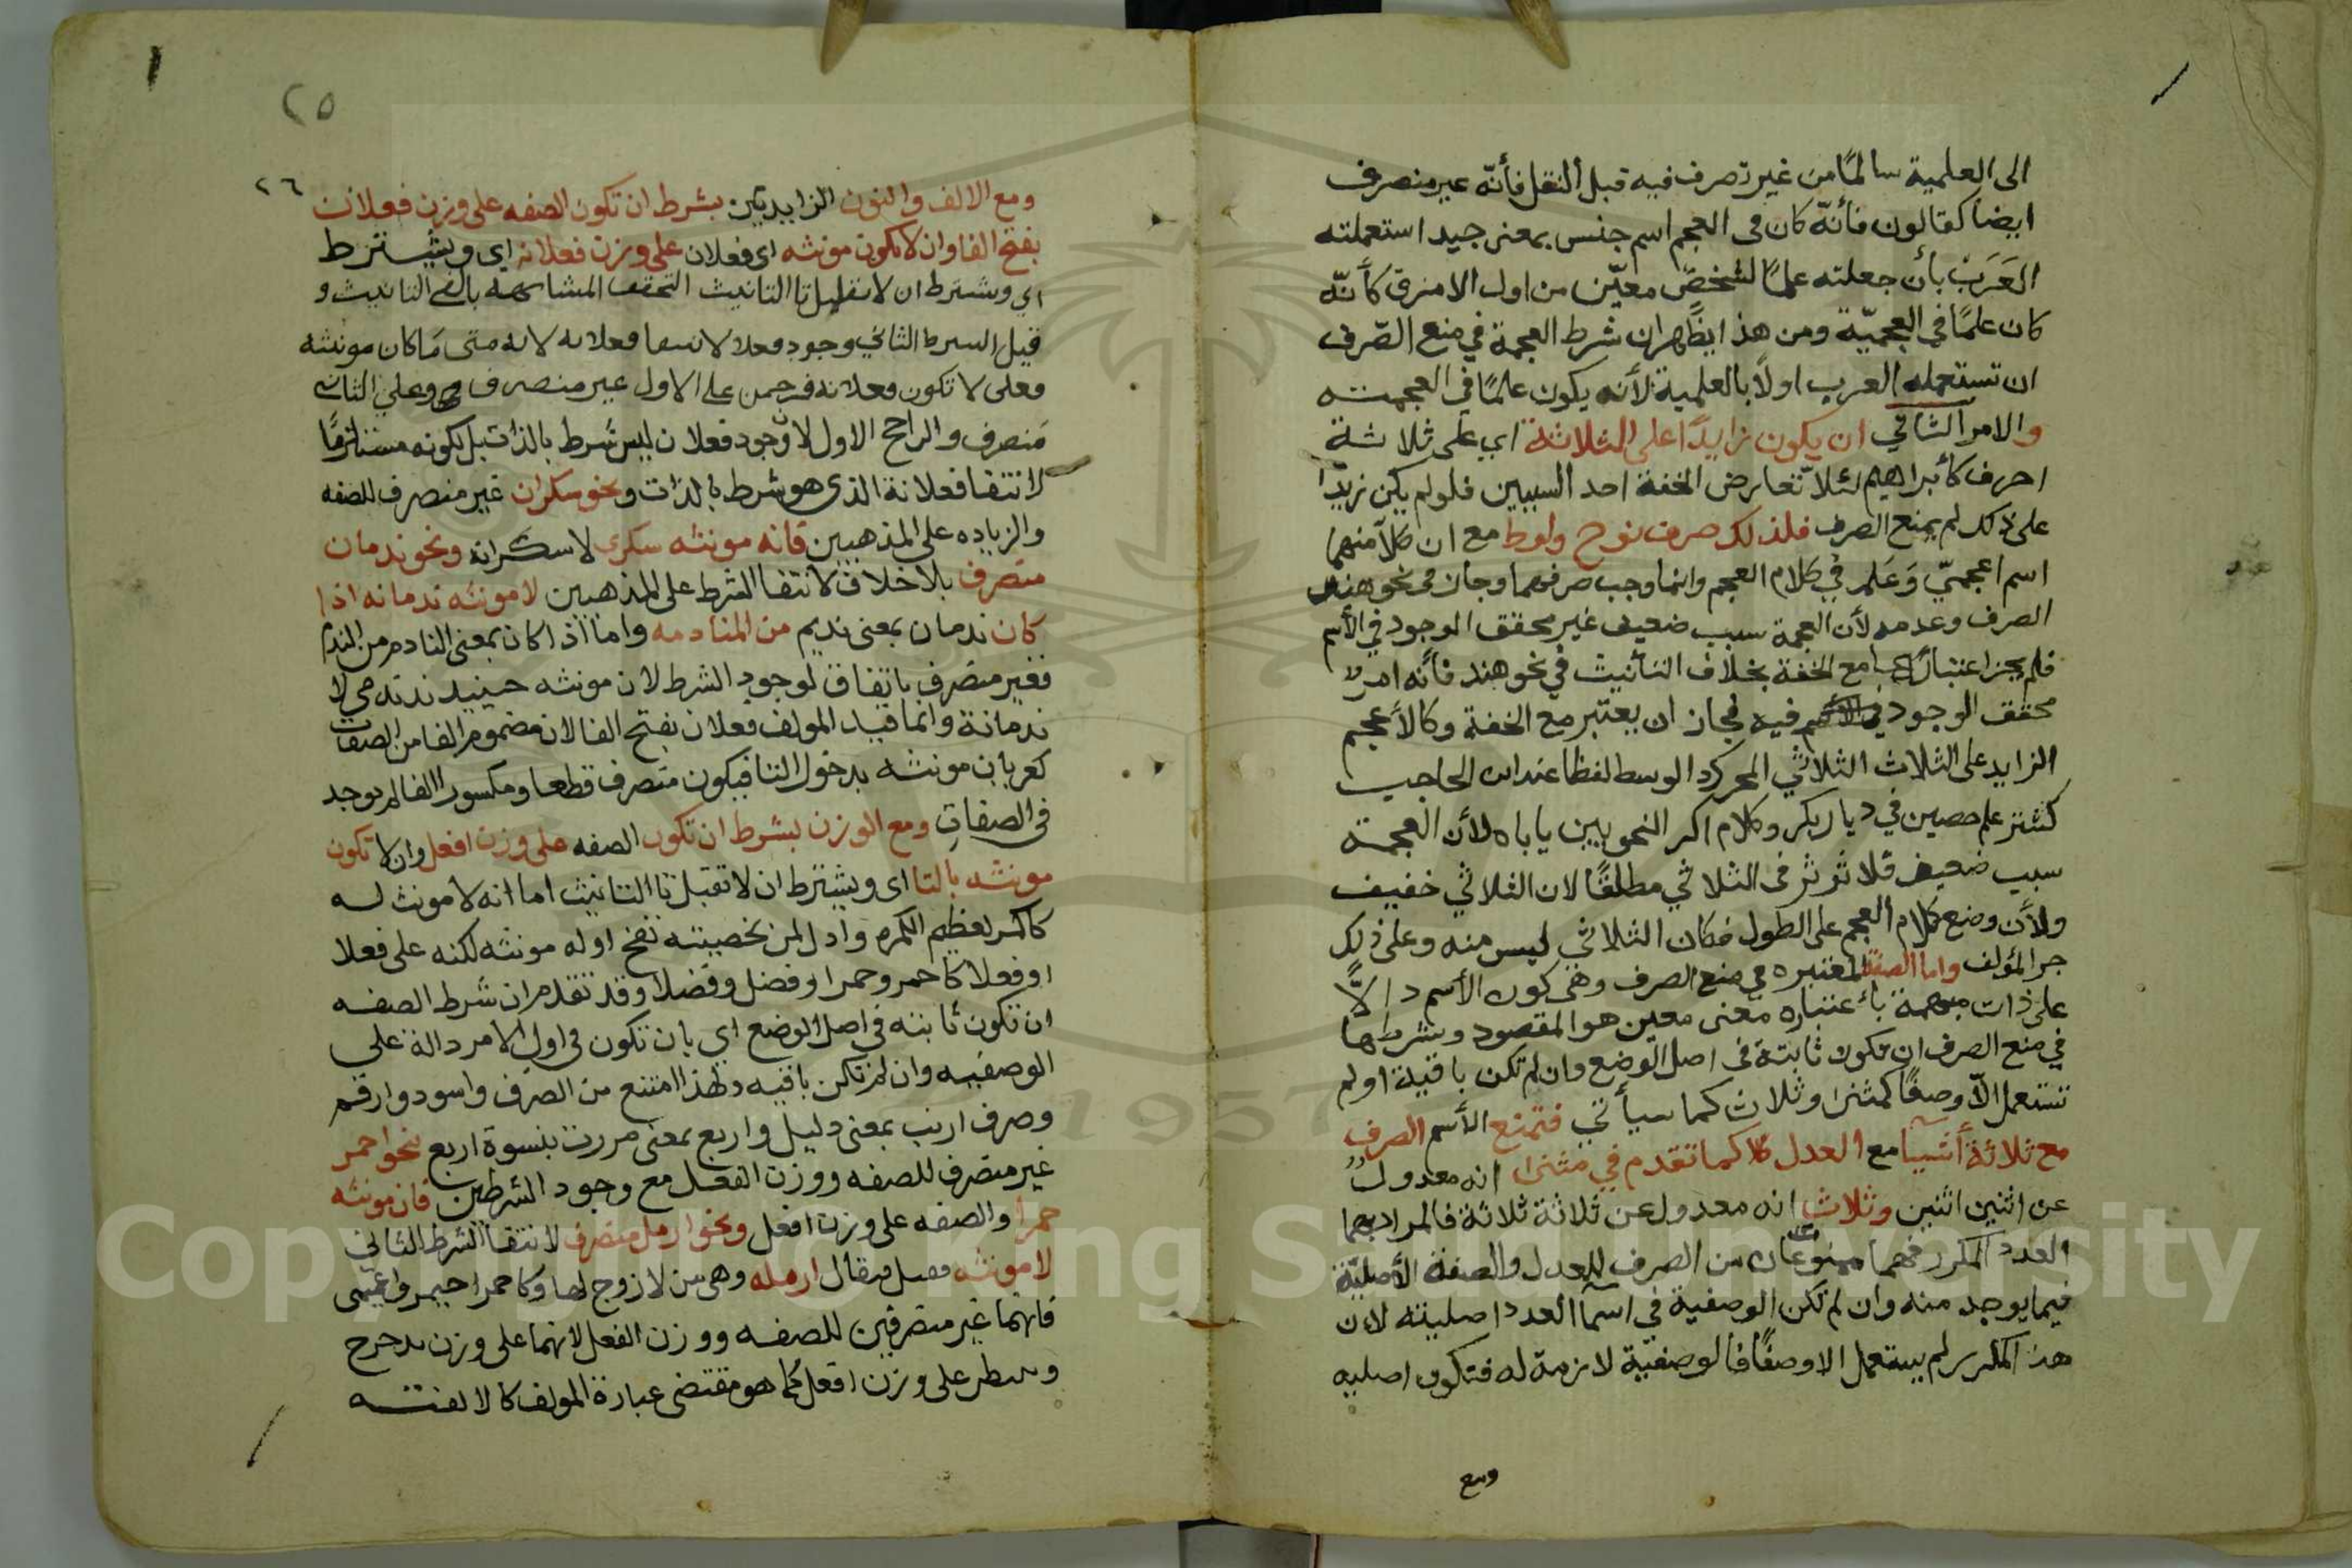 الى العلمية سالمًا من غير تصرف فيه قبل النقل فأنّه غير منصرف
ايضا كقالون فأنّه كان فى العجم اسم جنس بمعنى جيد استعملته
العَرَبُ بأن جعلته علمًا لشخصٍ معيّن من اول الامر فكأنّه
كان علمًا في العجميّة ومن هذا يظهر ان شرط العجمة في منع الصّرف
ان تستعمله العرب اولًا بالعلمية لأنه يكون علمًا في العجمته
والامر الثاني ان يكون زايدًا على الثلاثة اي على ثلاثة
احرف كأبراهيم لئلا تعارض الخفة احد السببين فلو لم يكن زيدًا
على ذلك لم يمنع الصرف فلذلك صرف نوح ولوط مع ان كلًا منهما
اسم اعجميّ وَعَلم في كلام العجم وانما وجب صرفهما وجاز فى نحو هند
الصرف وعدمه لأن العجمة سبب ضعيف غير محقق الوجود في الأسم
فلم يجز اعتبارها مع الخفة بخلاف التأنيث في نحو هند فأنه امر
محقق الوجود فيه فجاز ان يعتبر مع الخفة وكالأعجم
الزايد على الثلاث الثلاثي المحرك الوسط لفظا عند ابن الحاجب
كشتر علم حصين في ديار بكر وكلام اكثر النحويين ياباه لأن العجمة
سبب ضعيف فلا تؤثر فى الثلاثي مطلقًا لان الثلاثي خفيف
ولأن وضع كلام العجم على الطول فكان الثلاثي ليس منه وعلى ذلك
جر المؤلف واما الصفة المعتبره في منع الصرف وهى كون الأسم دالًّا
على ذات مبهمة بأعتباره معنى معين هو المقصود وشرطها
في منع الصرف ان تكون ثابتة فى اصل الوضع وان لم تكن باقية او لم
تستعمل الّا وصفًا كمثنى وثلاث كما سيأتي فتمنع الأسم الصرف
مع ثلاثة أشيا مع العدل كا كما تقدم في مثنى انه معدول
عن اثنين اثنين وثلاث انه معدول عن ثلاثة ثلاثة فالمراد بهما
العدد المكرر فهما ممنوعان من الصرف للعدل والصفة الأصليّة
فيما يوجد منه وان لم تكن الوصفية في اسمآ العدد اصليته لان
هذا المكرر لم يستعمل الا وصفًا فالوصفيّة لازمة له فتكون اصليه
ومع
٢٥
٢٦
ومع الالف والنون الزايدتين بشرط ان تكون الصفه على وزن فعلان
بفتح الفا وان لا تكون مونثه اى فعلان على وزن فعلانه اي ويشترط
اي ويشترط ان لا تقبل تا التانيث التحقق المشابهه بالفي التانيث و
قيل الشرط الثاني وجود فعلا لا انتفا فعلانه لانه متى مَا كان مونثه
فعلى لا تكون فعلانه فرحمن على الاول غير منصرف وعلي الثاني
مَنصرف والراجح الاول لان وجود فعلان ليس شرط بالذات بل لكونه مستلزمًا
لانتفا فعلانة الذي هو شرط بالذات ونحو سكران غير منصرف للصفه
والزياده على المذهبين فانه مونثه سكرى لا سكرانة ونحو ندمان
منصرف بلا خلاف لانتفا الشرط على المذهبين لا مونثه ندمانه اذا
كان ندمان بمعنى نديم من المنادمه واما اذا كان بمعنى النادم من الندم
فغير منصرف باتفاق لوجود الشرط لان مونثه حينيد ندمى لا
ندمانة وانما قيد المولف فعلان بفتح الفا لان مضموم الفا من الصفات
كعريان مونثه بدخول التا فيكون منصرف قطعا ومكسور الفا لم يوجد
فى الصفات ومع الوزن بشرط ان تكون الصفه على وزن افعل وان لا تكون
مونثه بالتا اى ويشترط ان لا تقبل تا التانيث اما انه لا مونث له
كاكمر لعظيم الكمره وادر لمن بخصيته نفخ او له مونثه لكنه على فعلا
او فعلا كاحمر وحمرا وفضل وفضلا وقد تقدم ان شرط الصفه
ان تكون ثابته في اصل الوضع اي بان تكون فى اول الامر دالة على
الوصفيه وان لم تكن باقيه ولهذا امتنع من الصرف واسود وارقم
وصرف ارنب بمعنى دليل واربع بمعنى مررت بنسوة اربع نحو احمر
غير منصرف للصفه ووزن الفعل مع وجود الشرطين فان مونثه
حمرا والصفه على وزن افعل ونحو ارمل منصرف لانتفا الشرط الثاني
لا مونثه فيقال ارمله وهى من لا زوج لها وكاحمر احيمر واعيمى
فانهما غير منصرفين للصفه ووزن الفعل لانهما على وزن يدحرج
على وزن افعل كما هو مقتضى عبارة المولف كالالفيته
Copyright © King Saud University
1957